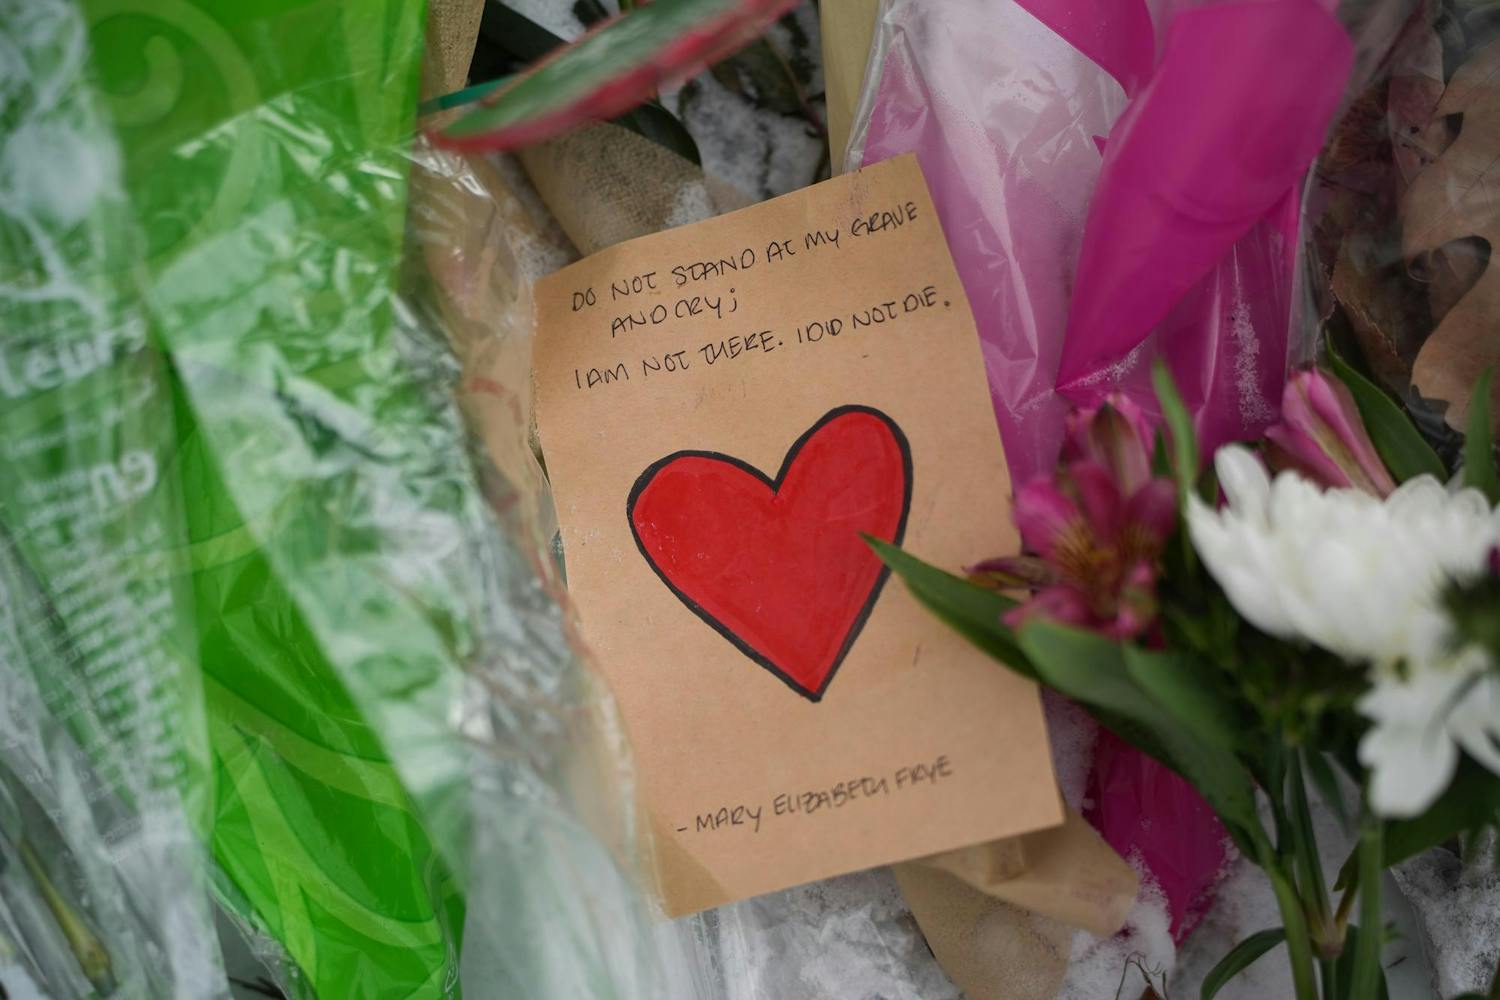 DO NOT STAND AT MY GRAVE
AND CRY;
I AM NOT THERE. I DID NOT DIE.
- MARY ELIZABETH FRYE